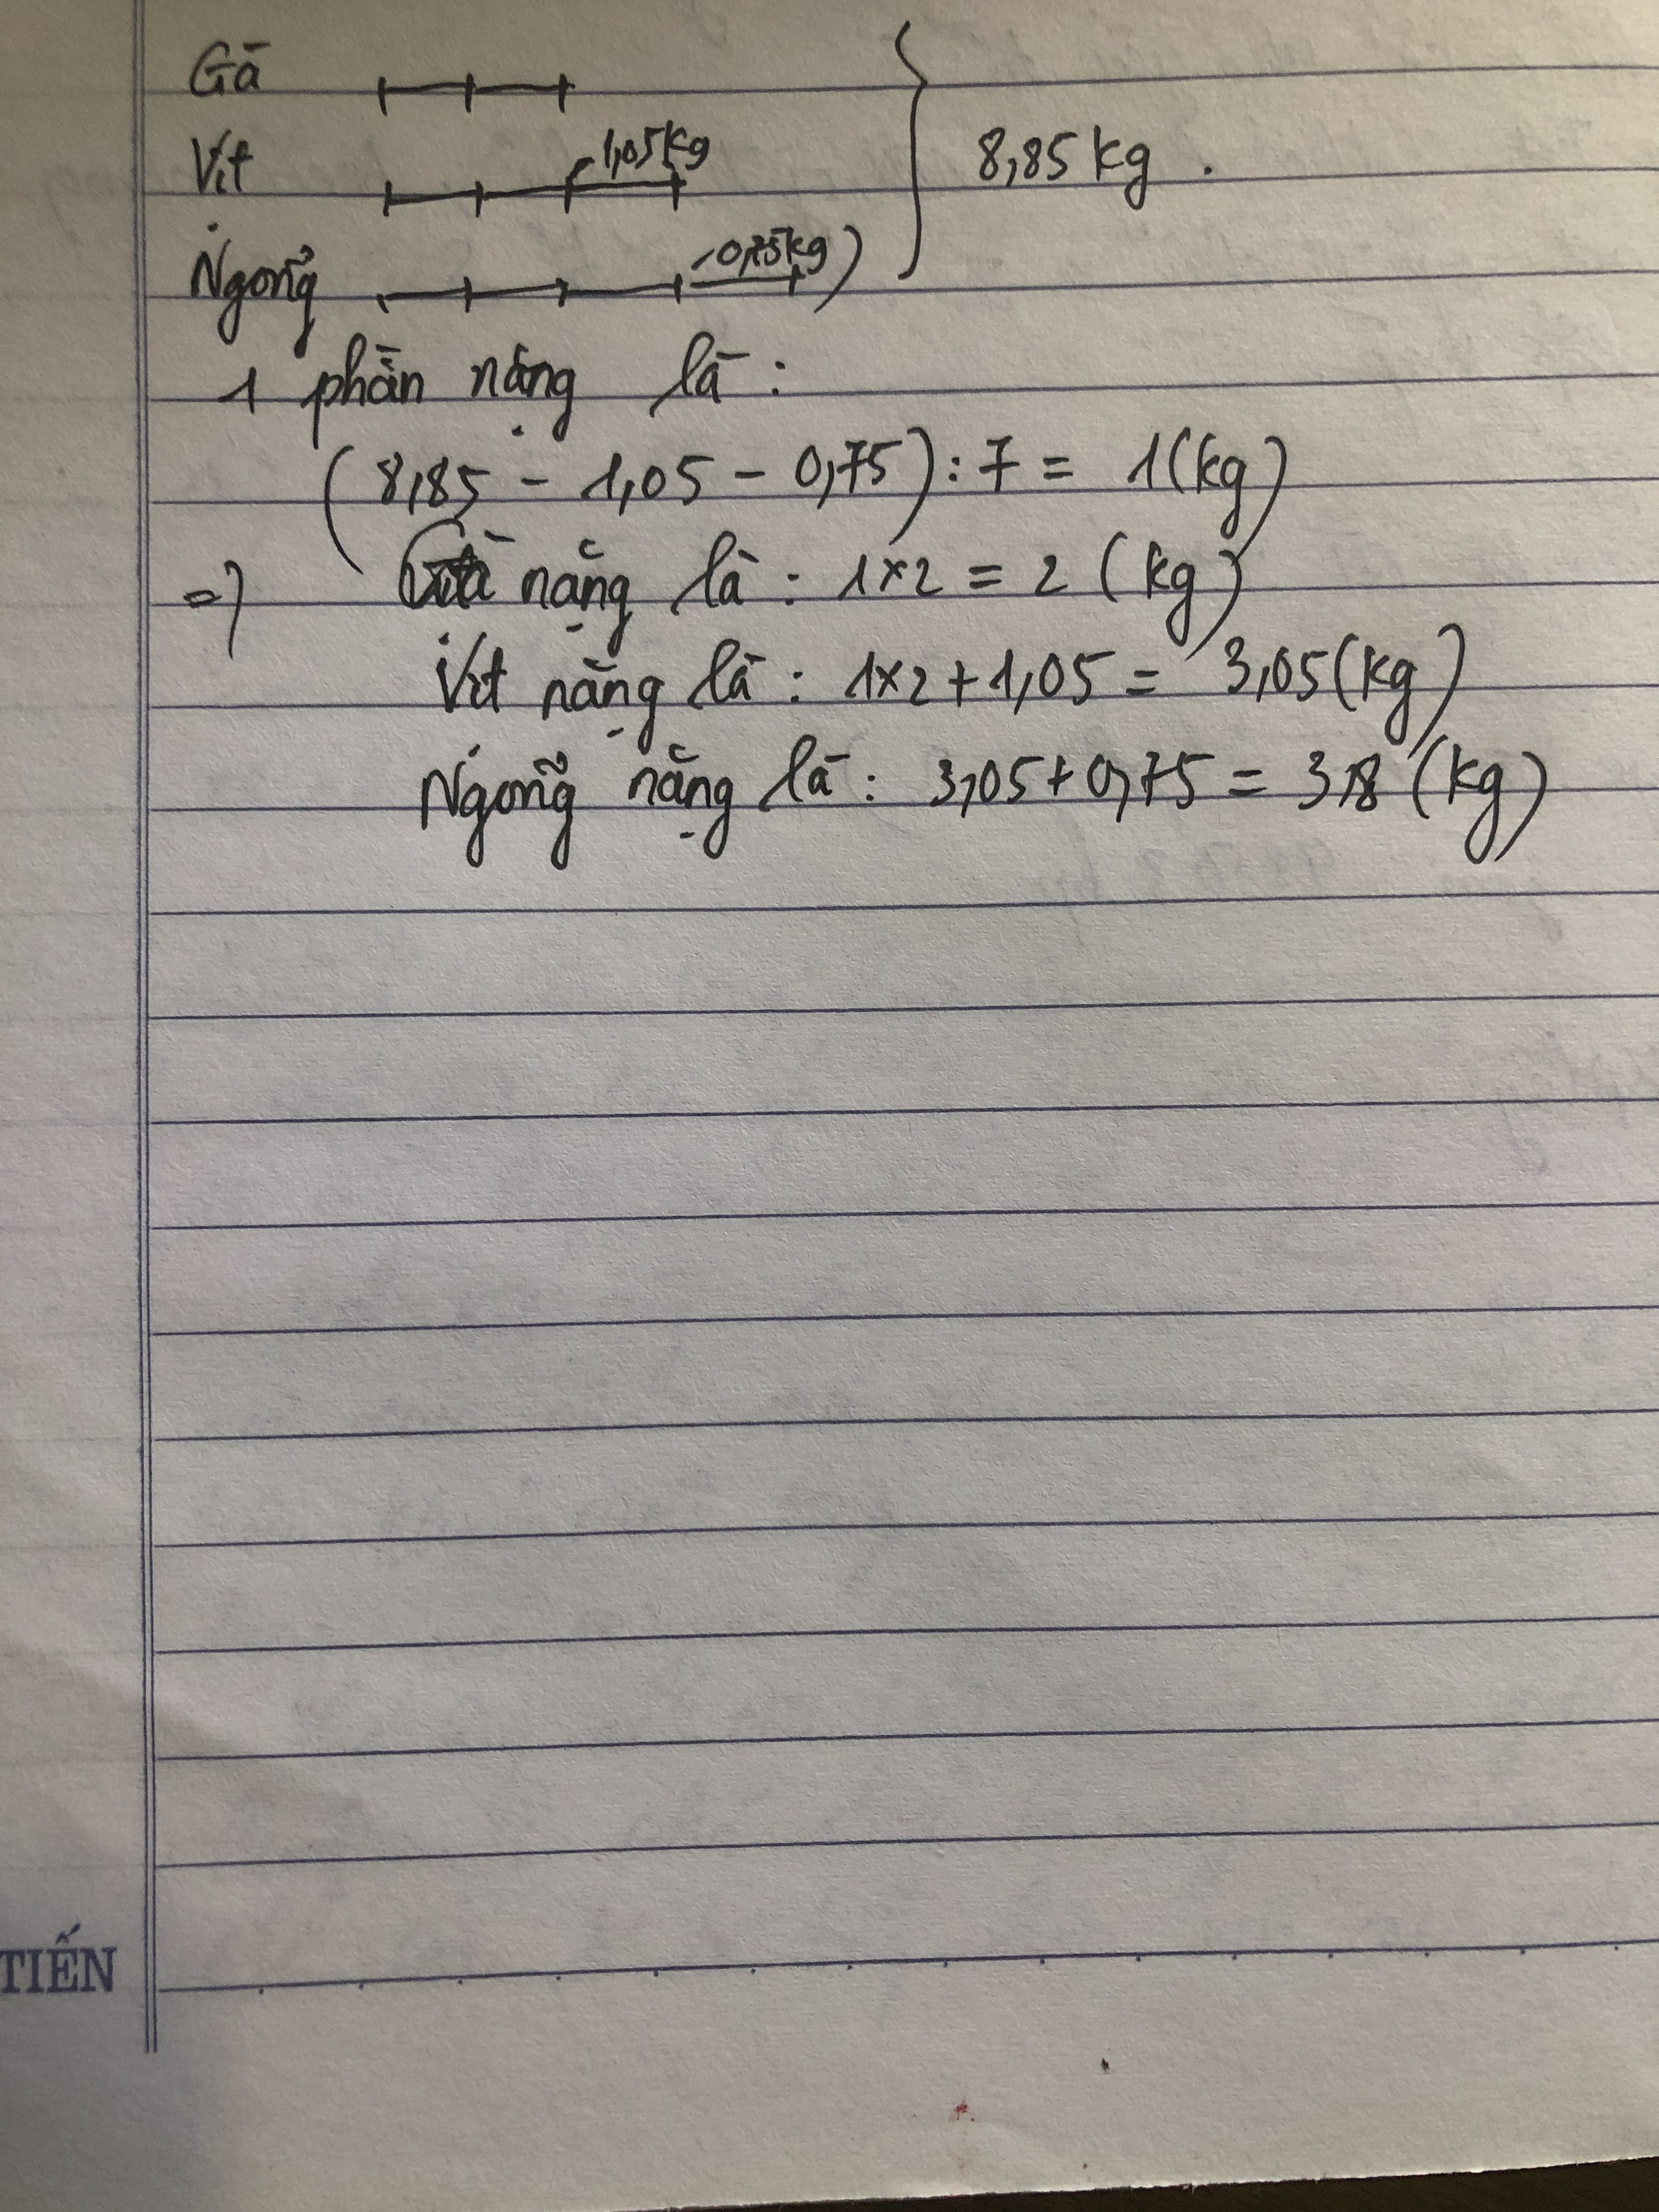 Gà
Vịt 1,05kg 8,85 kg.
Ngỗng 0,75kg)
1 phần nặng là:
(8,85 - 1,05 - 0,75) : 7 = 1(kg)
=> Gà nặng là: 1×2 = 2 (kg)
Vịt nặng là: 1×2 + 1,05 = 3,05(kg)
Ngỗng nặng là: 3,05 + 0,75 = 3,8 (kg)
TIẾN